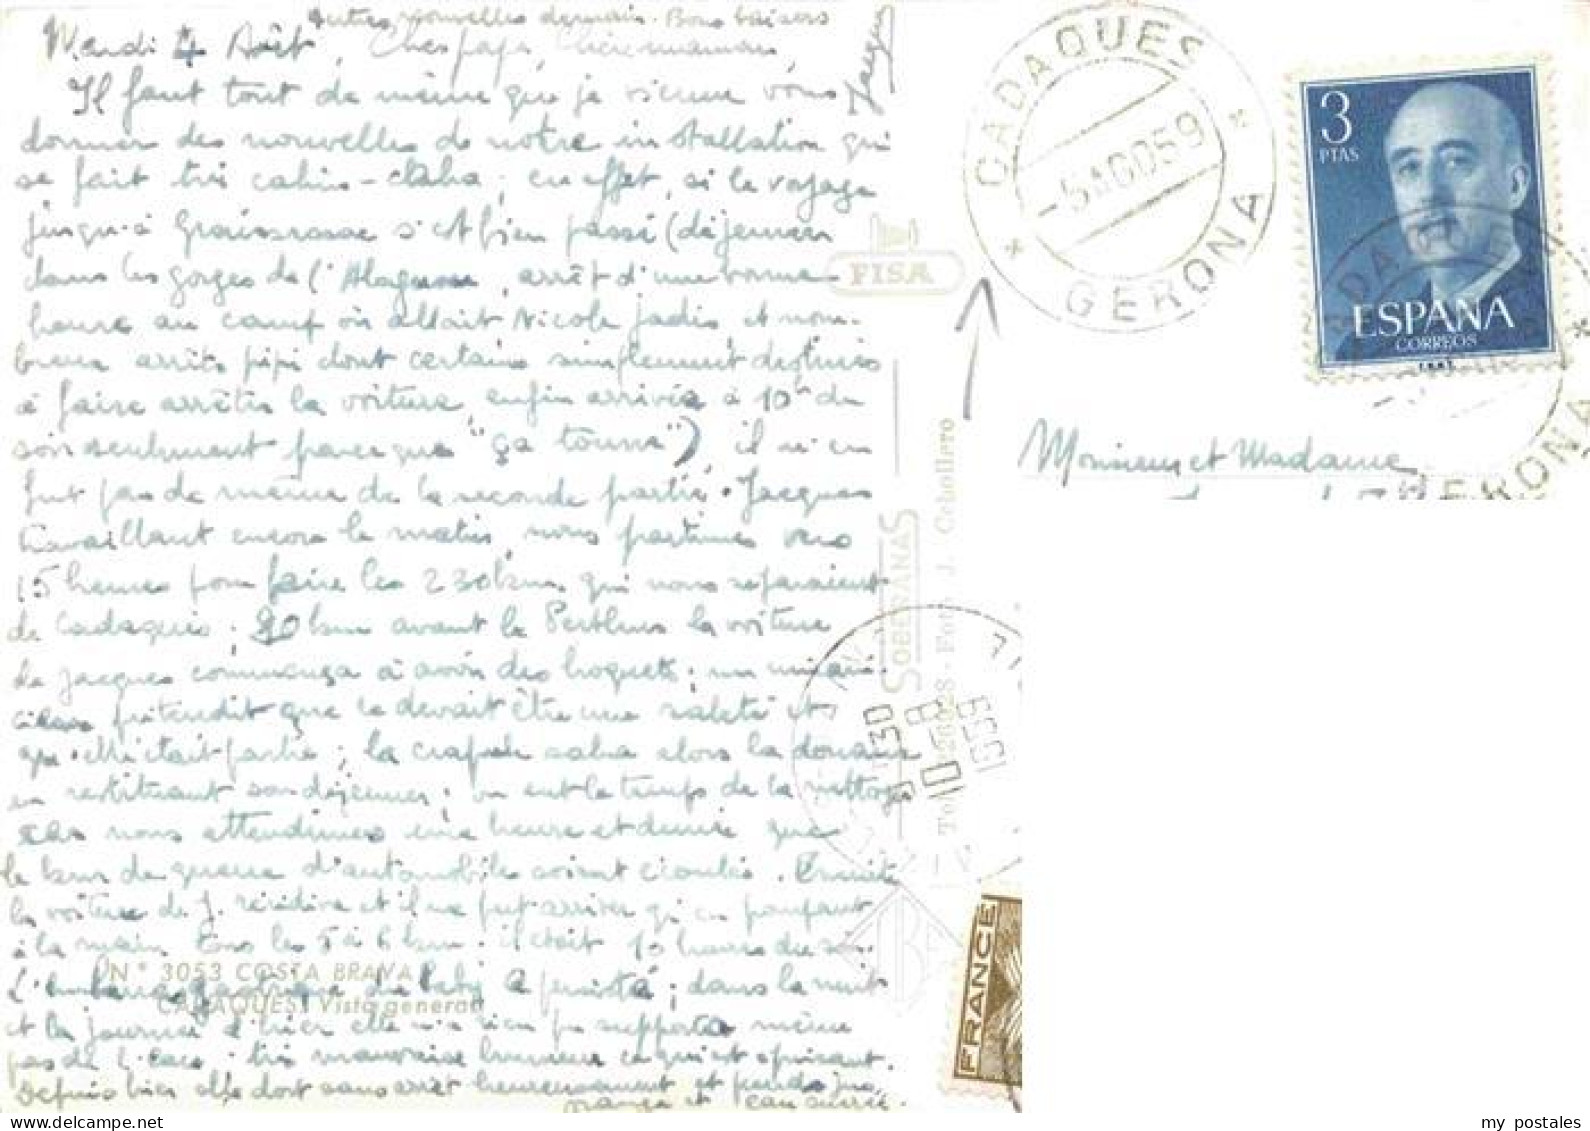 autres nouvelles demain. Bons baisers
Jacques
Mardi 4 Août, Cher papa, Chère maman,
Il faut tout de même que je vienne vous
donner des nouvelles de notre installation qui
se fait très cahin-caha ; en effet, si le voyage
jusqu'à s'est bien passé (déjeuner
dans les gorges de l' arrêt d'une bonne
heure au camp où allait Nicole jadis, et nom-
breux arrêts pipi dont certains simplement destinés
à faire arrêter la voiture, enfin arrivée à 10h du
soir seulement parce que "ça tourne"), il n'en
fut pas de même de la seconde partie. Jacques
travaillant encore le matin, nous partîmes vers
15 heures pour faire les 230 km qui nous séparaient
de Cadaquès ; 20 km avant le Perthus la voiture
de Jacques commença à avoir des hoquets ; un mécani-
cien prétendit que ce devait être une saleté et
qu'elle était partie ; la crapule salua alors la douane
en restituant son déjeuner ; on eut le temps de la nettoyer
car nous attendîmes une heure et demie que
le bas de queue d'automobiles soient écoulés. Ensuite
la voiture de J. récidiva et il ne put arriver qu'en pompant
à la main tous les 5 à 6 km. il était 10 heures du soir
L'embarras gastrique du baby a persisté ; dans la nuit
et la journée d'hier elle n'a rien pu supporter même
pas de l'eau ; très mauvaise humeur ce qui est épuisant.
Depuis hier elle dort sans arrêt heureusement et prend jus
orange et eau sucrée.
N° 3053 COSTA BRAVA
CADAQUES. Vista general
FISA
SOBERANAS
Foto J. Cebollero
CADAQUES
-5 AGO 59
GERONA
3
PTAS
ESPAÑA
CORREOS
GERONA
Monsieur et Madame
30
10-8
1959
FRANCE
my postales